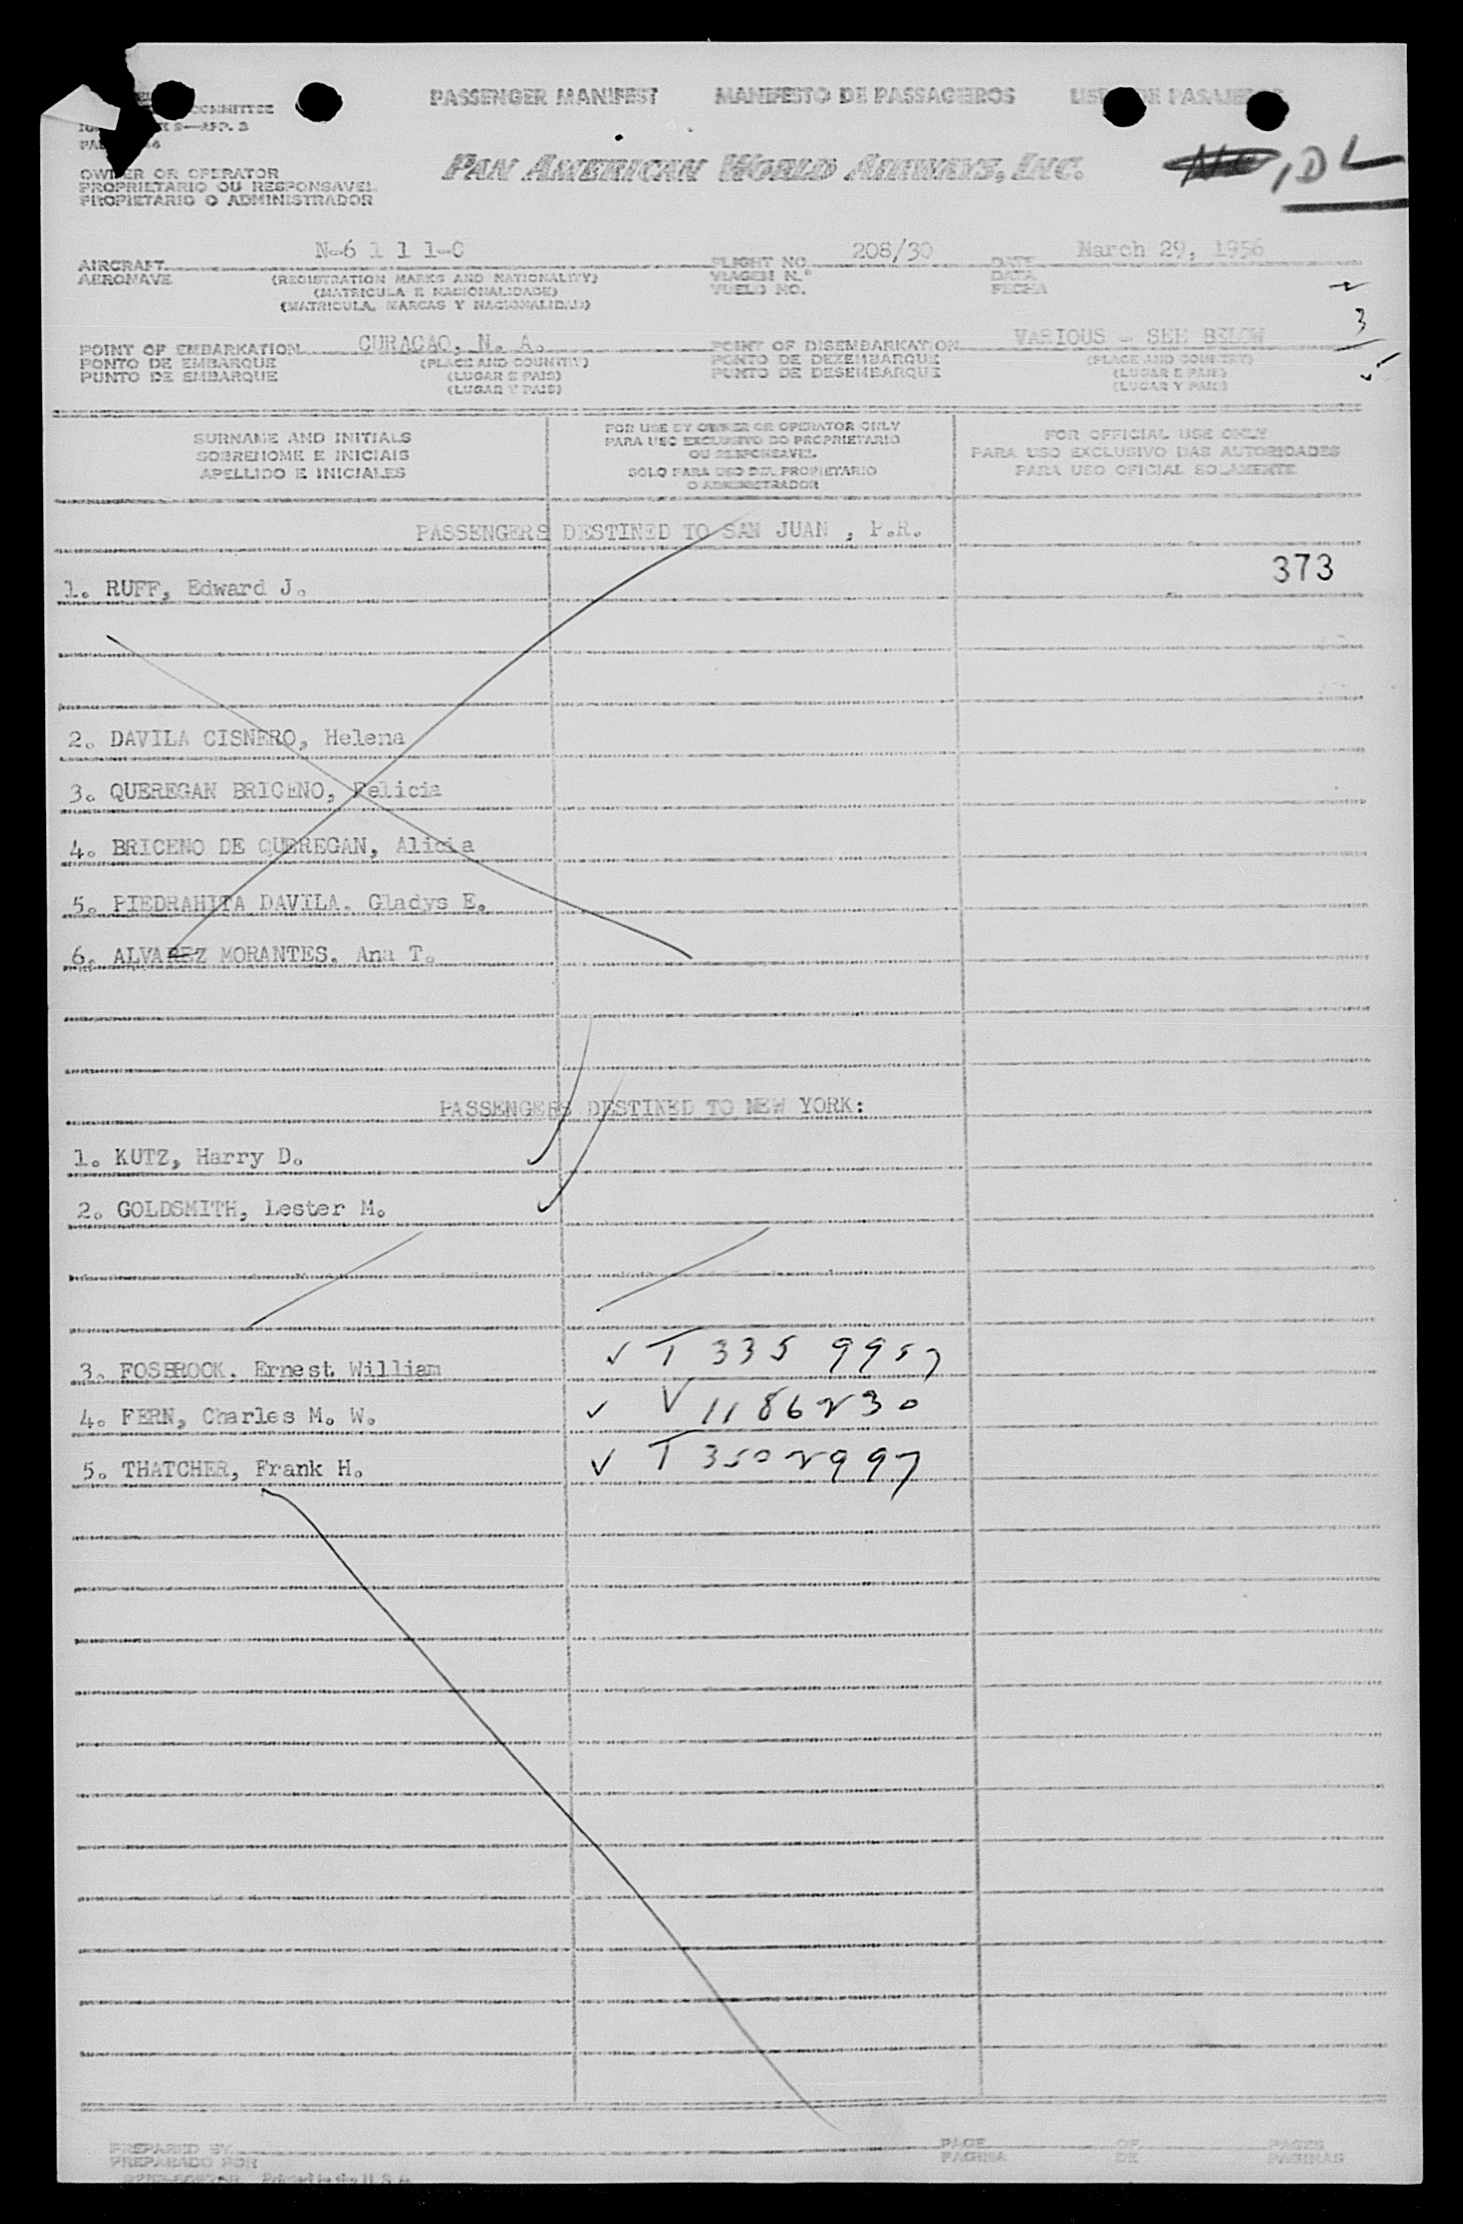 PASSENGER MANIFEST MANIFESTO DE PASSAGEIROS
COMMITTEE
PAN AMERICAN WORLD AIRWAYS, INC.
, DL
OWNER OR OPERATOR
PROPRIETARIO OU RESPONSAVEL
PROPIETARIO O ADMINISTRADOR
N-6 1 1 1-C 208/30 March 29, 1956
AIRCRAFT FLIGHT NO. DATE
AERONAVE (REGISTRATION MARKS AND NATIONALITY) VIAGEM N.º DATA
(MATRICULA E NACIONALIDADE) VUELO NO. FECHA
(MATRICULA, MARCAS Y NACIONALIDAD)
2
3
5
CURACAO, N. A. VARIOUS - SEE BELOW
POINT OF EMBARKATION POINT OF DISEMBARKATION
PONTO DE EMBARQUE (PLACE AND COUNTRY) PONTO DE DEZEMBARQUE (PLACE AND COUNTRY)
PUNTO DE EMBARQUE (LUGAR E PAIS) PUNTO DE DESEMBARQUE (LUGAR E PAIS)
(LUGAR Y PAIS) (LUGAR Y PAIS)
SURNAME AND INITIALS
SOBRENOME E INICIAIS
APELLIDO E INICIALES
FOR USE BY OWNER OR OPERATOR ONLY
PARA USO EXCLUSIVO DO PROPRIETARIO
OU RESPONSAVEL
SOLO PARA USO DEL PROPIETARIO
O ADMINISTRADOR
FOR OFFICIAL USE ONLY
PARA USO EXCLUSIVO DAS AUTORIDADES
PARA USO OFICIAL SOLAMENTE
PASSENGERS DESTINED TO SAN JUAN , P.R.
373
1. RUFF, Edward J.
2. DAVILA CISNERO, Helena
3. QUEREGAN BRICENO, Felicia
4. BRICENO DE QUEREGAN, Alicia
5. PIEDRAHITA DAVILA. Gladys E.
6. ALVAREZ MORANTES. Ana T.
PASSENGERS DESTINED TO NEW YORK:
1. KUTZ, Harry D.
2. GOLDSMITH, Lester M.
3. FOSBROOK. Ernest William ✓ T 335 9957
4. FERN, Charles M. W. ✓ V 1186230
5. THATCHER, Frank H. ✓ T 3502997
PREPARED BY PAGE OF PAGES
PREPARADO POR PAGINA DE PAGINAS
Printed in the U.S.A.